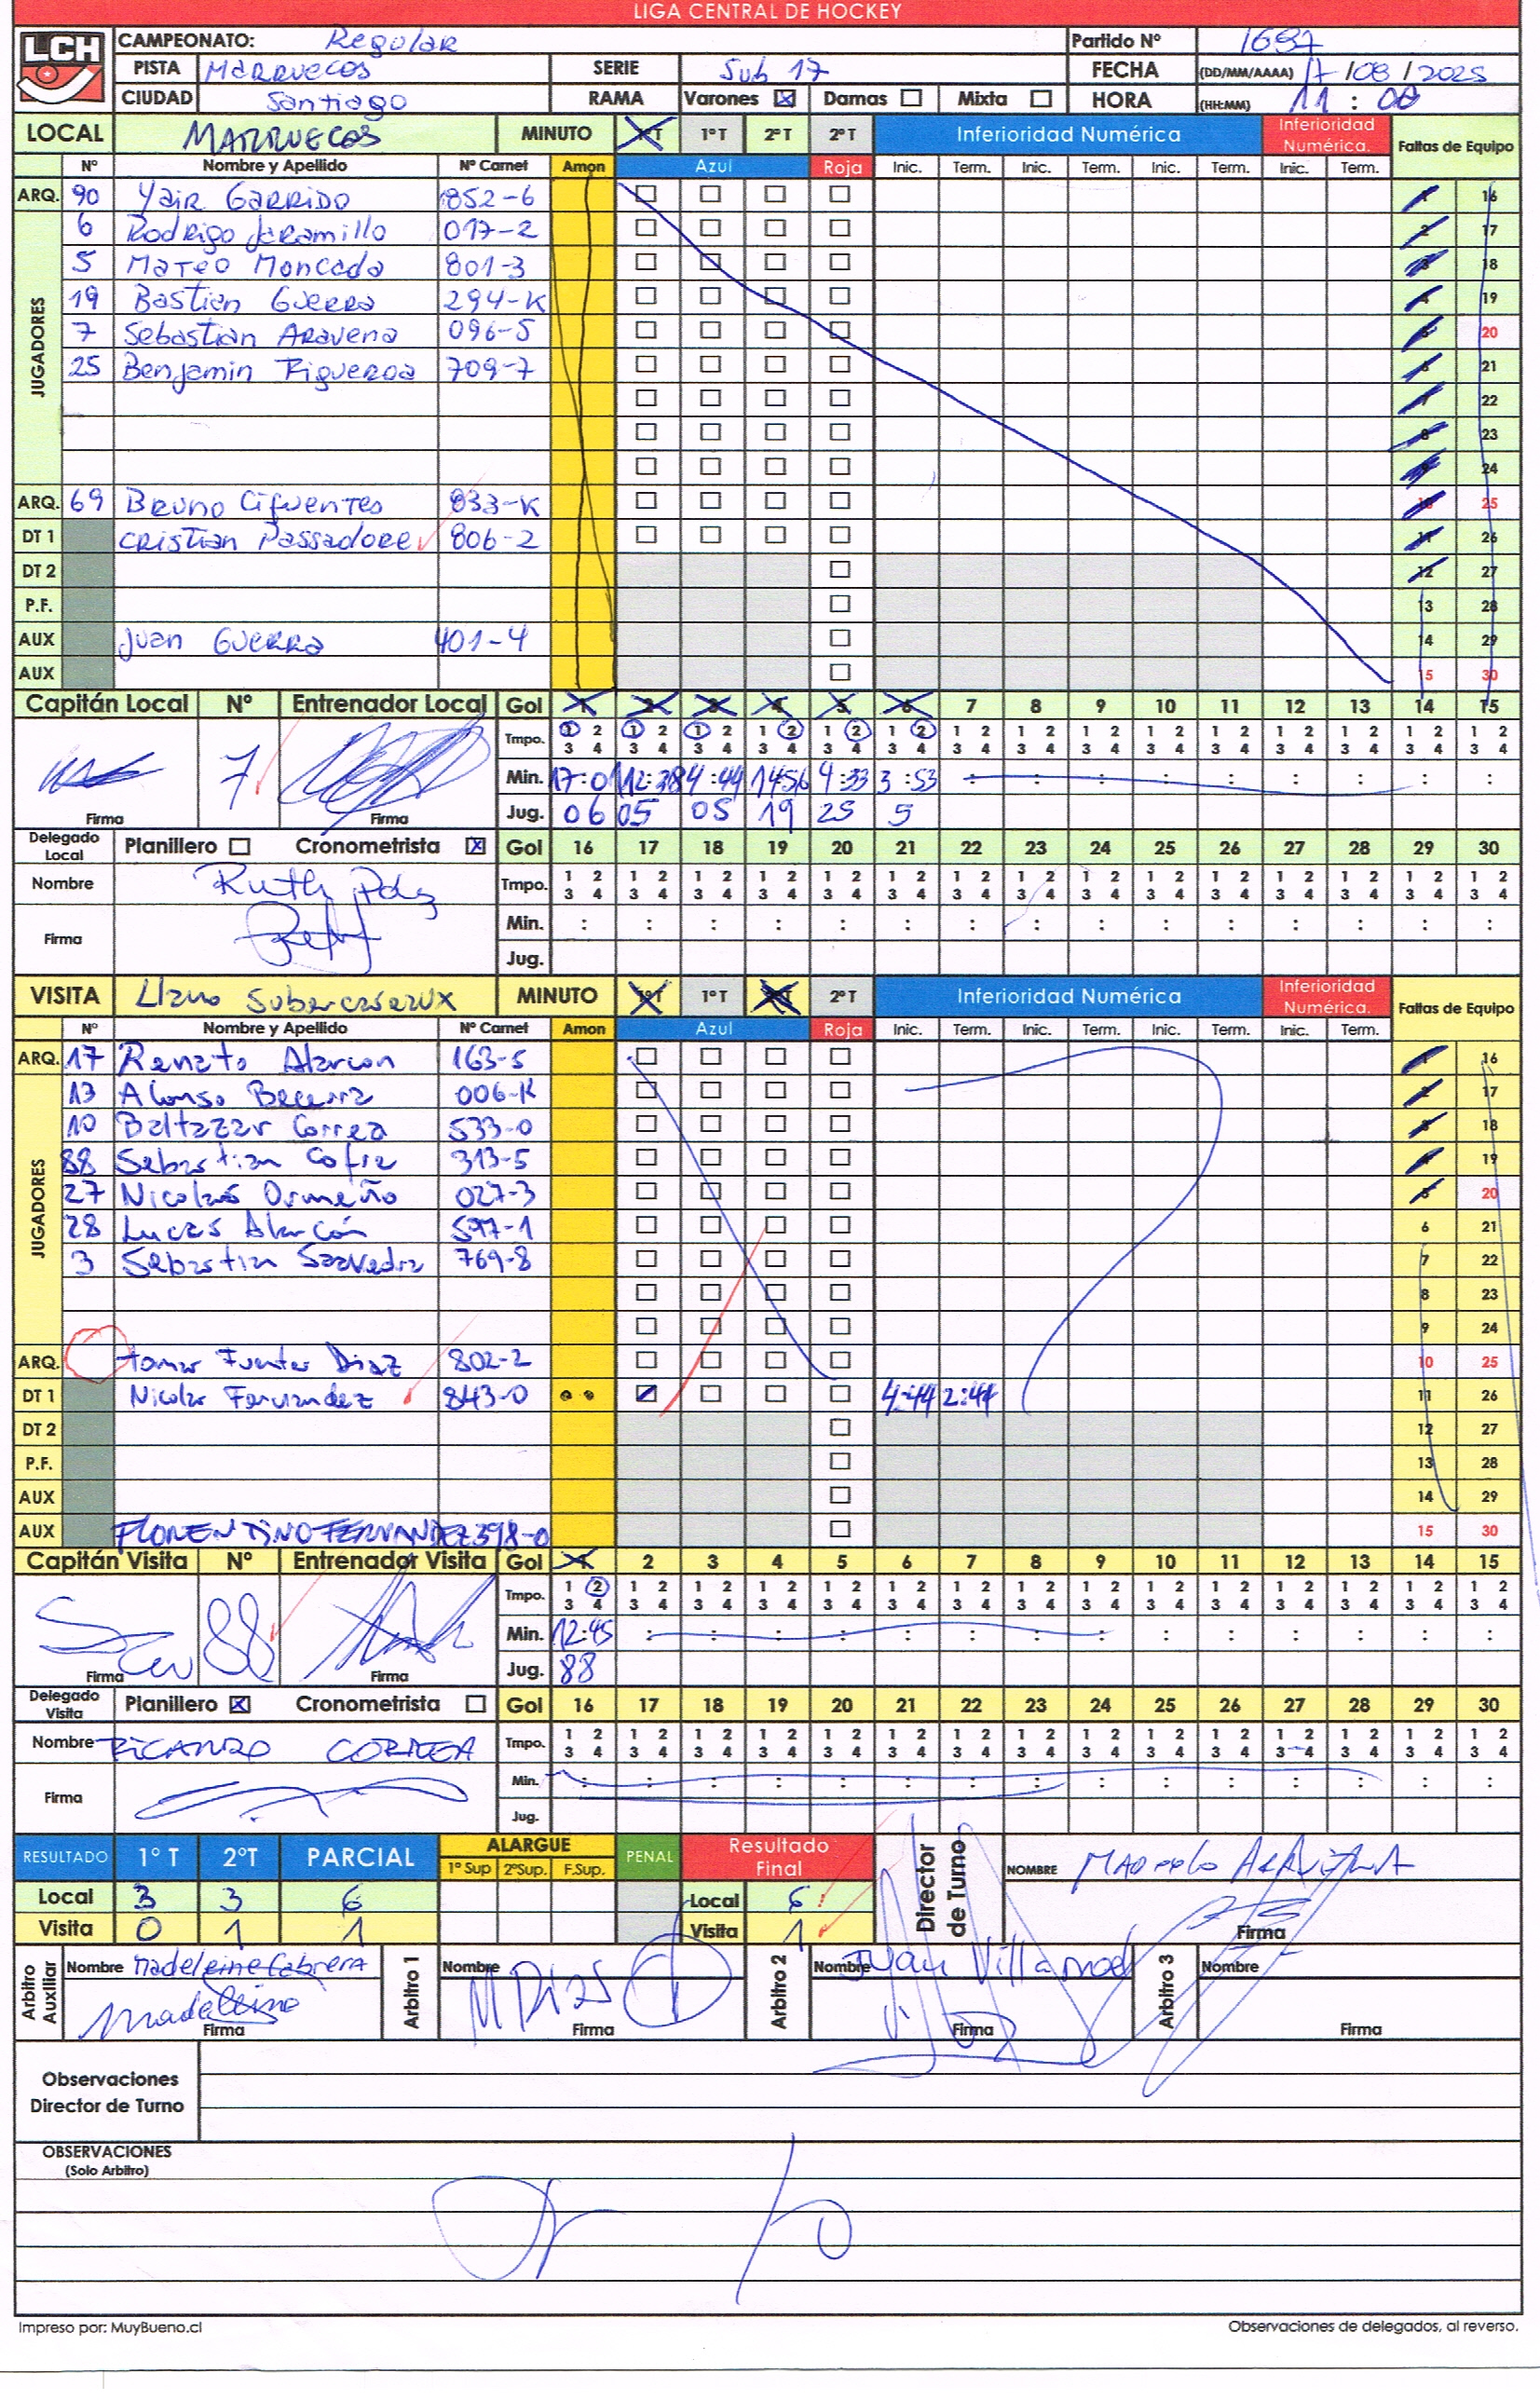 LIGA CENTRAL DE HOCKEY
LCH
CAMPEONATO: Regular Partido Nº 1697
PISTA MARRUECOS SERIE Sub 17 FECHA (DD/MM/AAAA) 17/08/2025
CIUDAD Santiago RAMA Varones ☒ Damas ☐ Mixta ☐ HORA (HH:MM) 11:00
LOCAL MARRUECOS MINUTO 1ºT 1ºT 2ºT 2ºT Inferioridad Numérica Inferioridad Numérica. Faltas de Equipo
Nº Nombre y Apellido Nº Carnet Amon Azul Roja Inic. Term. Inic. Term. Inic. Term. Inic. Term.
ARQ. 90 Yair GARRIDO 852-6 1 16
JUGADORES
6 Rodrigo Jaramillo 017-2 2 17
5 Mateo Moncada 801-3 3 18
19 Bastian Guerra 294-K 4 19
7 Sebastian Aravena 096-5 5 20
25 Benjamin Figueroa 709-7 6 21
7 22
8 23
9 24
ARQ. 69 Bruno Cifuentes 833-K 10 25
DT 1 CRISTIAN Passadore 806-2 11 26
DT 2 12 27
P.F. 13 28
AUX Juan Guerra 401-4 14 29
AUX 15 30
Capitán Local Nº Entrenador Local Gol 1 2 3 4 5 6 7 8 9 10 11 12 13 14 15
Tmpo. 1 2 3 4 1 2 3 4 1 2 3 4 1 2 3 4 1 2 3 4 1 2 3 4 1 2 3 4 1 2 3 4 1 2 3 4 1 2 3 4 1 2 3 4 1 2 3 4 1 2 3 4 1 2 3 4 1 2 3 4
7 Min. 17:01 12:38 4:44 14:56 4:33 3:53
Firma Firma Jug. 06 05 05 19 25 5
Delegado Local Planillero ☐ Cronometrista ☒ Gol 16 17 18 19 20 21 22 23 24 25 26 27 28 29 30
Nombre Ruth Tmpo. 1 2 3 4 1 2 3 4 1 2 3 4 1 2 3 4 1 2 3 4 1 2 3 4 1 2 3 4 1 2 3 4 1 2 3 4 1 2 3 4 1 2 3 4 1 2 3 4 1 2 3 4 1 2 3 4 1 2 3 4
Firma Min.
Jug.
VISITA Llano Subercaseaux MINUTO 1ºT 1ºT 2ºT 2ºT Inferioridad Numérica Inferioridad Numérica. Faltas de Equipo
Nº Nombre y Apellido Nº Carnet Amon Azul Roja Inic. Term. Inic. Term. Inic. Term. Inic. Term.
ARQ. 17 Renato Alarcon 163-5 1 16
JUGADORES
13 Alonso Becerra 006-K 2 17
10 Baltazar Correa 533-0 3 18
88 Sebastian Cofre 313-5 4 19
27 Nicolas Ormeño 027-3 5 20
28 Lucas Alarcón 597-1 6 21
3 Sebastian Saavedra 769-8 7 22
8 23
9 24
ARQ. tomas Fuentes Diaz 802-2 10 25
DT 1 Nicolas Fernandez 843-0 4:44 2:44 11 26
DT 2 12 27
P.F. 13 28
AUX 14 29
AUX FLORENTINO FERNANDEZ 398-0 15 30
Capitán Visita Nº Entrenador Visita Gol 1 2 3 4 5 6 7 8 9 10 11 12 13 14 15
Tmpo. 1 2 3 4 1 2 3 4 1 2 3 4 1 2 3 4 1 2 3 4 1 2 3 4 1 2 3 4 1 2 3 4 1 2 3 4 1 2 3 4 1 2 3 4 1 2 3 4 1 2 3 4 1 2 3 4 1 2 3 4
88 Min. 12:45
Firma Firma Jug. 88
Delegado Visita Planillero ☒ Cronometrista ☐ Gol 16 17 18 19 20 21 22 23 24 25 26 27 28 29 30
Nombre RICARDO CORREA Tmpo. 1 2 3 4 1 2 3 4 1 2 3 4 1 2 3 4 1 2 3 4 1 2 3 4 1 2 3 4 1 2 3 4 1 2 3 4 1 2 3 4 1 2 3 4 1 2 3 4 1 2 3 4 1 2 3 4 1 2 3 4
Firma Min.
Jug.
RESULTADO 1º T 2ºT PARCIAL ALARGUE 1º Sup 2ºSup. F.Sup. PENAL Resultado Final Director de Turno NOMBRE MARCELO ARAVENA
Local 3 3 6 Local 6
Visita 0 1 1 Visita 1 Firma
Arbitro Auxiliar Nombre Madeleine Cabrera Arbitro 1 Nombre M Dias Arbitro 2 Nombre Juan Villarroel Arbitro 3 Nombre
Firma Firma Firma Firma
Observaciones Director de Turno
OBSERVACIONES
(Solo Arbitro)
Impreso por: MuyBueno.cl Observaciones de delegados, al reverso.